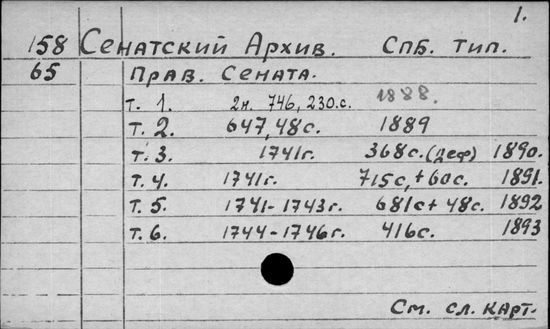 1.
158 Сенатский Архив. СПБ. тип.
65 Прав. Сената.
т. 1. 2н. 746, 230.с. 1888.
т. 2. 647, 48с. 1889
т. 3. 1741г. 368с. (деф) 1890.
т. 4. 1741г. 715с, +60с. 1891.
т. 5. 1741-1743г. 681с+ 48с. 1892
т. 6. 1744-1746г. 416с. 1893
См. сл. карт.